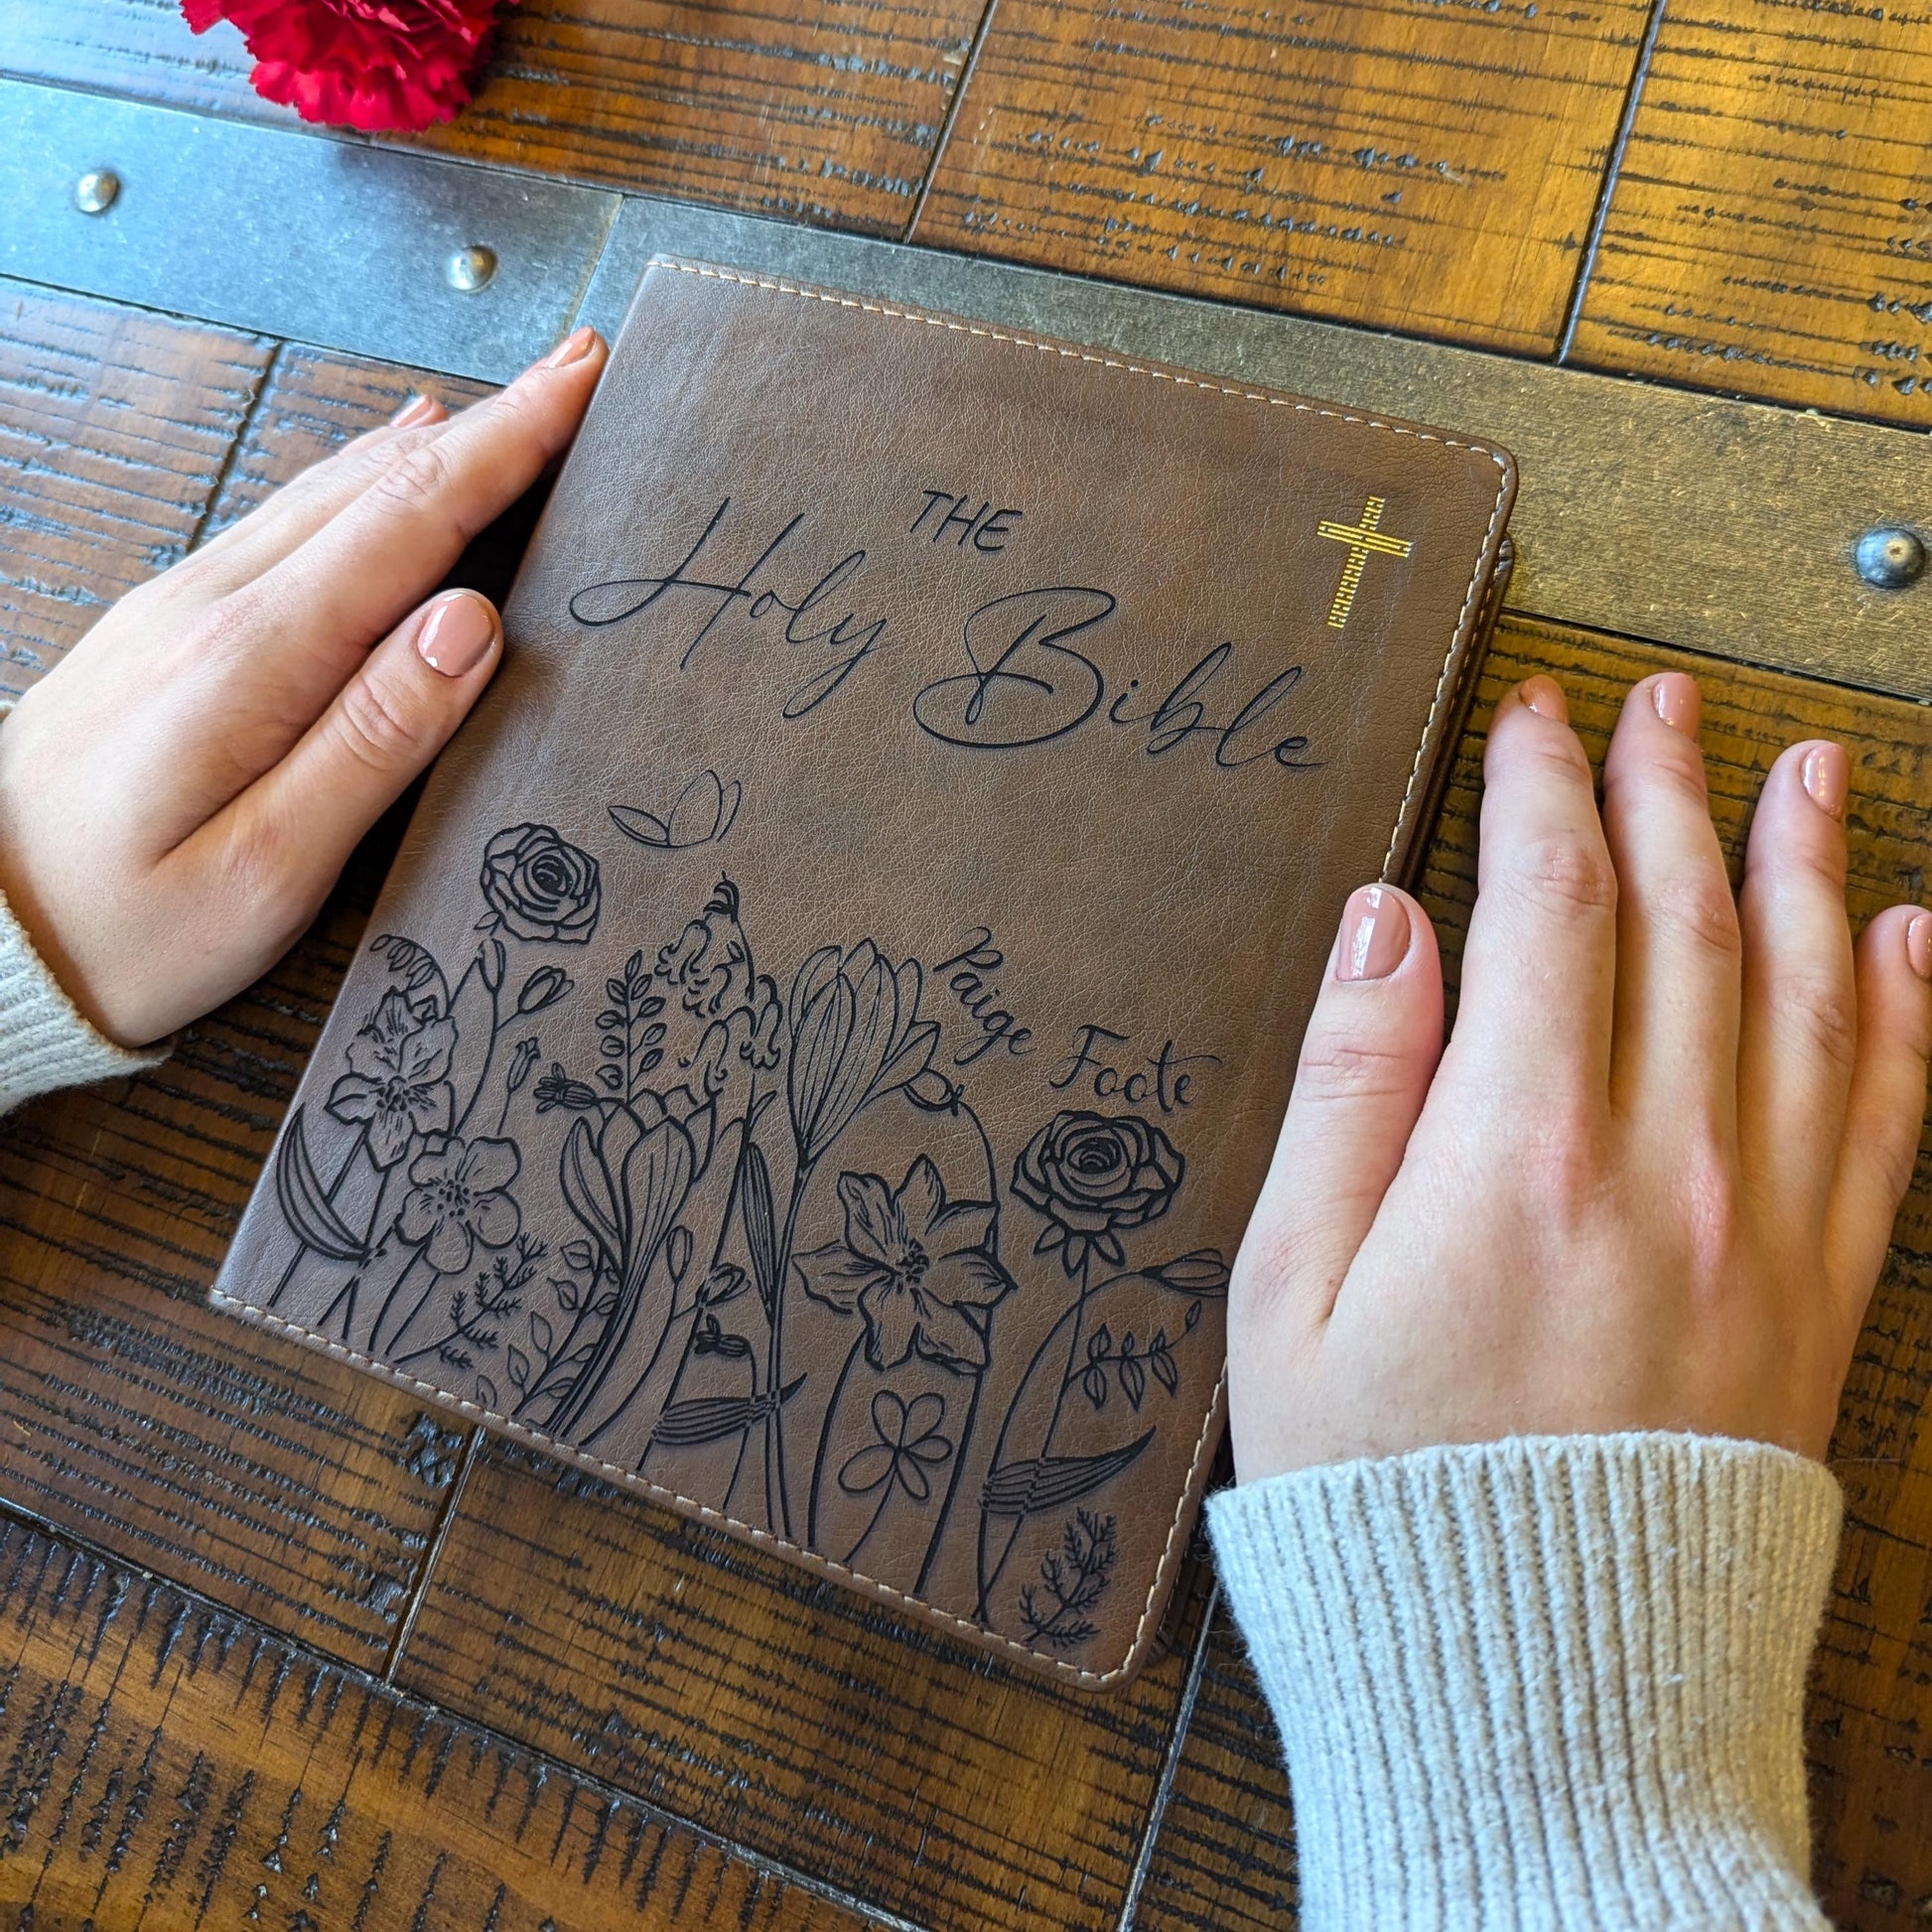 THE
Holy Bible
Paige Foote